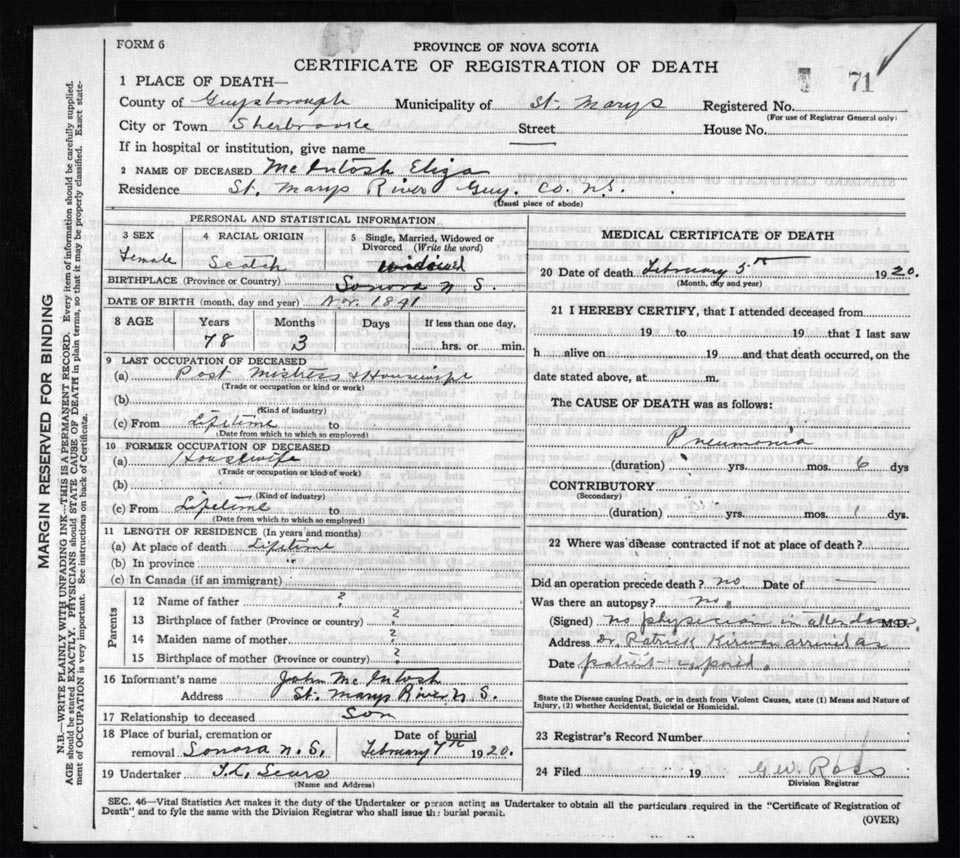 FORM 6
PROVINCE OF NOVA SCOTIA
CERTIFICATE OF REGISTRATION OF DEATH
71
1 PLACE OF DEATH—
County of Guysborough Municipality of St. Marys Registered No.
(For use of Registrar General only)
City or Town Sherbrooke Street House No.
If in hospital or institution, give name
2 NAME OF DECEASED McIntosh Eliza
Residence St. Marys River Guy. Co. N.S.
(Usual place of abode)
PERSONAL AND STATISTICAL INFORMATION
3 SEX Female
4 RACIAL ORIGIN Scotch
5 Single, Married, Widowed or Divorced (Write the word) widowed
BIRTHPLACE (Province or Country) Sonora N S.
DATE OF BIRTH (month, day and year) Nov. 1891
8 AGE Years Months Days If less than one day,
78 3 hrs. or min.
9 LAST OCCUPATION OF DECEASED
(a) Post Mistress & Housewife
(Trade or occupation or kind of work)
(b)
(Kind of industry)
(c) From Lifetime to
(Date from which to which so employed)
10 FORMER OCCUPATION OF DECEASED
(a) Housewife
(Trade or occupation or kind of work)
(b)
(Kind of industry)
(c) From Lifetime to
(Date from which to which so employed)
11 LENGTH OF RESIDENCE (In years and months)
(a) At place of death Lifetime
(b) In province "
(c) In Canada (if an immigrant)
Parents
12 Name of father ?
13 Birthplace of father (Province or country) ?
14 Maiden name of mother ?
15 Birthplace of mother (Province or country) ?
16 Informant's name John McIntosh
Address St. Marys River N S.
17 Relationship to deceased Son
18 Place of burial, cremation or removal Sonora N.S.
Date of burial February 7th 1920.
19 Undertaker Sears
(Name and Address)
MEDICAL CERTIFICATE OF DEATH
20 Date of death February 5th 1920.
(Month, day and year)
21 I HEREBY CERTIFY, that I attended deceased from
19 to 19 that I last saw
h alive on 19 and that death occurred, on the
date stated above, at m.
The CAUSE OF DEATH was as follows:
Pneumonia
(duration) yrs. mos. 6 dys
CONTRIBUTORY
(Secondary)
(duration) yrs. mos. 1 dys.
22 Where was disease contracted if not at place of death?
Did an operation precede death? no Date of —
Was there an autopsy? no.
(Signed) no physician in attendance. M.D.
Address Dr. Patrick Kirwan arrived as
Date patient expired.
State the Disease causing Death, or in death from Violent Causes, state (1) Means and Nature of Injury, (2) whether Accidental, Suicidal or Homicidal.
23 Registrar's Record Number
24 Filed 19 G W. Ross
Division Registrar
SEC. 46—Vital Statistics Act makes it the duty of the Undertaker or person acting as Undertaker to obtain all the particulars required in the "Certificate of Registration of
Death" and to fyle the same with the Division Registrar who shall issue the burial permit.
(OVER)
MARGIN RESERVED FOR BINDING
N.B.—WRITE PLAINLY WITH UNFADING INK—THIS IS A PERMANENT RECORD. Every item of information should be carefully supplied.
AGE should be stated EXACTLY. PHYSICIANS should STATE CAUSE OF DEATH in plain terms, so that it may be properly classified. Exact statement
of OCCUPATION is very important. See instructions on back of Certificate.